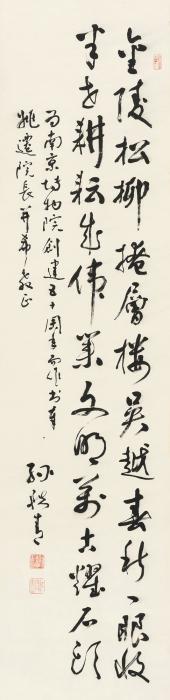 金陵松柳掩层楼吴越春秋一眼收
半世耕耘成伟业文明万古耀石头
为南京博物院创建五十周年而作书奉
姚迁院长并希教正
孙轶青